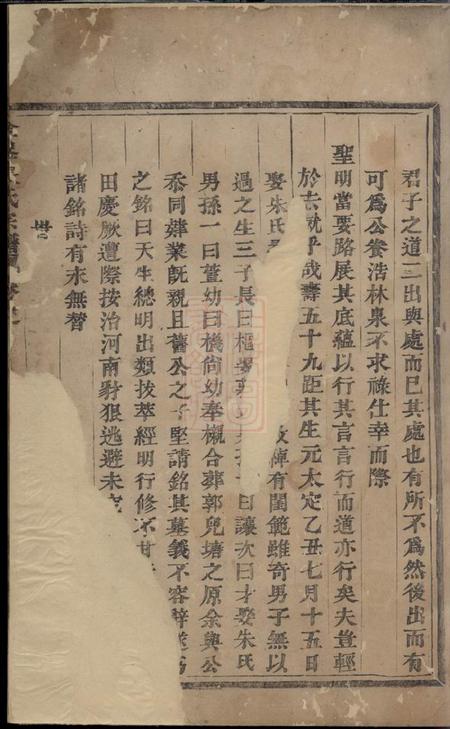 君子之道二出與處而已其處也有所不為然後出而有
可為公養浩林泉不求祿仕幸而際
聖明當要路展其底蘊以行其言言行而道亦行矣夫豈輕
於去就乎哉壽五十九距其生元太定乙丑七月十五日
娶朱氏 有閫範雖奇男子無以
過之生三子長曰樞 曰讓次曰才娶朱氏
男孫一曰董幼曰機尚幼奉櫬合葬郭兒塘之原余與公
忝同薛業既親且舊公之子堅請銘其墓義不容辭遂為
之銘曰天生總明出類拔萃經明行修不甘
田慶厥遭際按治河南豺狠逃避未
諸銘詩有永無替